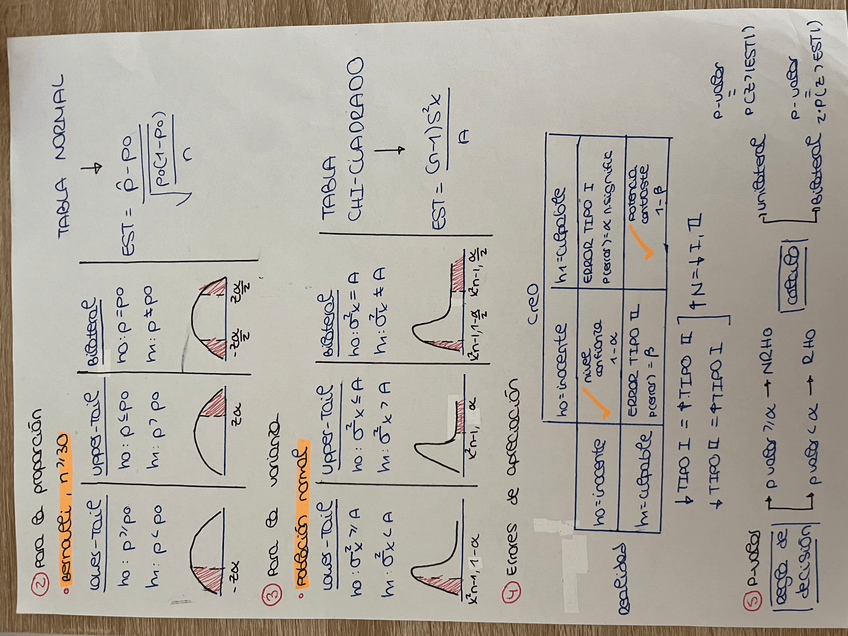 ② Para la proporción
• Bernoulli, n≥30
Lower-Tail
h0: p≥p0
h1: p<p0
-zα
Upper-Tail
h0: p≤p0
h1: p>p0
zα
Bilateral
h0: p=p0
h1: p≠p0
-zα/2 zα/2
TABLA NORMAL
↓
EST = p̂-p0 / √(p0(1-p0)/n)
③ Para la varianza
• Población normal
Lower-Tail
h0: σ²x ≥ A
h1: σ²x < A
χ²n-1, 1-α
Upper-Tail
h0: σ²x ≤ A
h1: σ²x > A
χ²n-1, α
Bilateral
h0: σ²x = A
h1: σ²x ≠ A
χ²n-1, 1-α/2 χ²n-1, α/2
TABLA
CHI-CUADRADO
↓
EST = (n-1)S²x / A
④ Errores de apreciación
creo
h0=inocente h1=culpable
Realidad
h0=inocente
nivel
confianza
1-α
ERROR TIPO I
P(error)=α n.signific
h1=culpable
ERROR TIPO II
P(error)=β
potencia
contraste
1-β
↓TIPO I = ↑TIPO II
↓TIPO II = ↑TIPO I
↑N=↓I, II
⑤ P-valor
Regla de
decisión
→ p valor ≥ α → NRH0
→ p valor < α → RH0
cálculo
→ unilateral
p-valor
=
P(Z>|EST|)
→ Bilateral
p-valor
=
2·P(Z>|EST|)